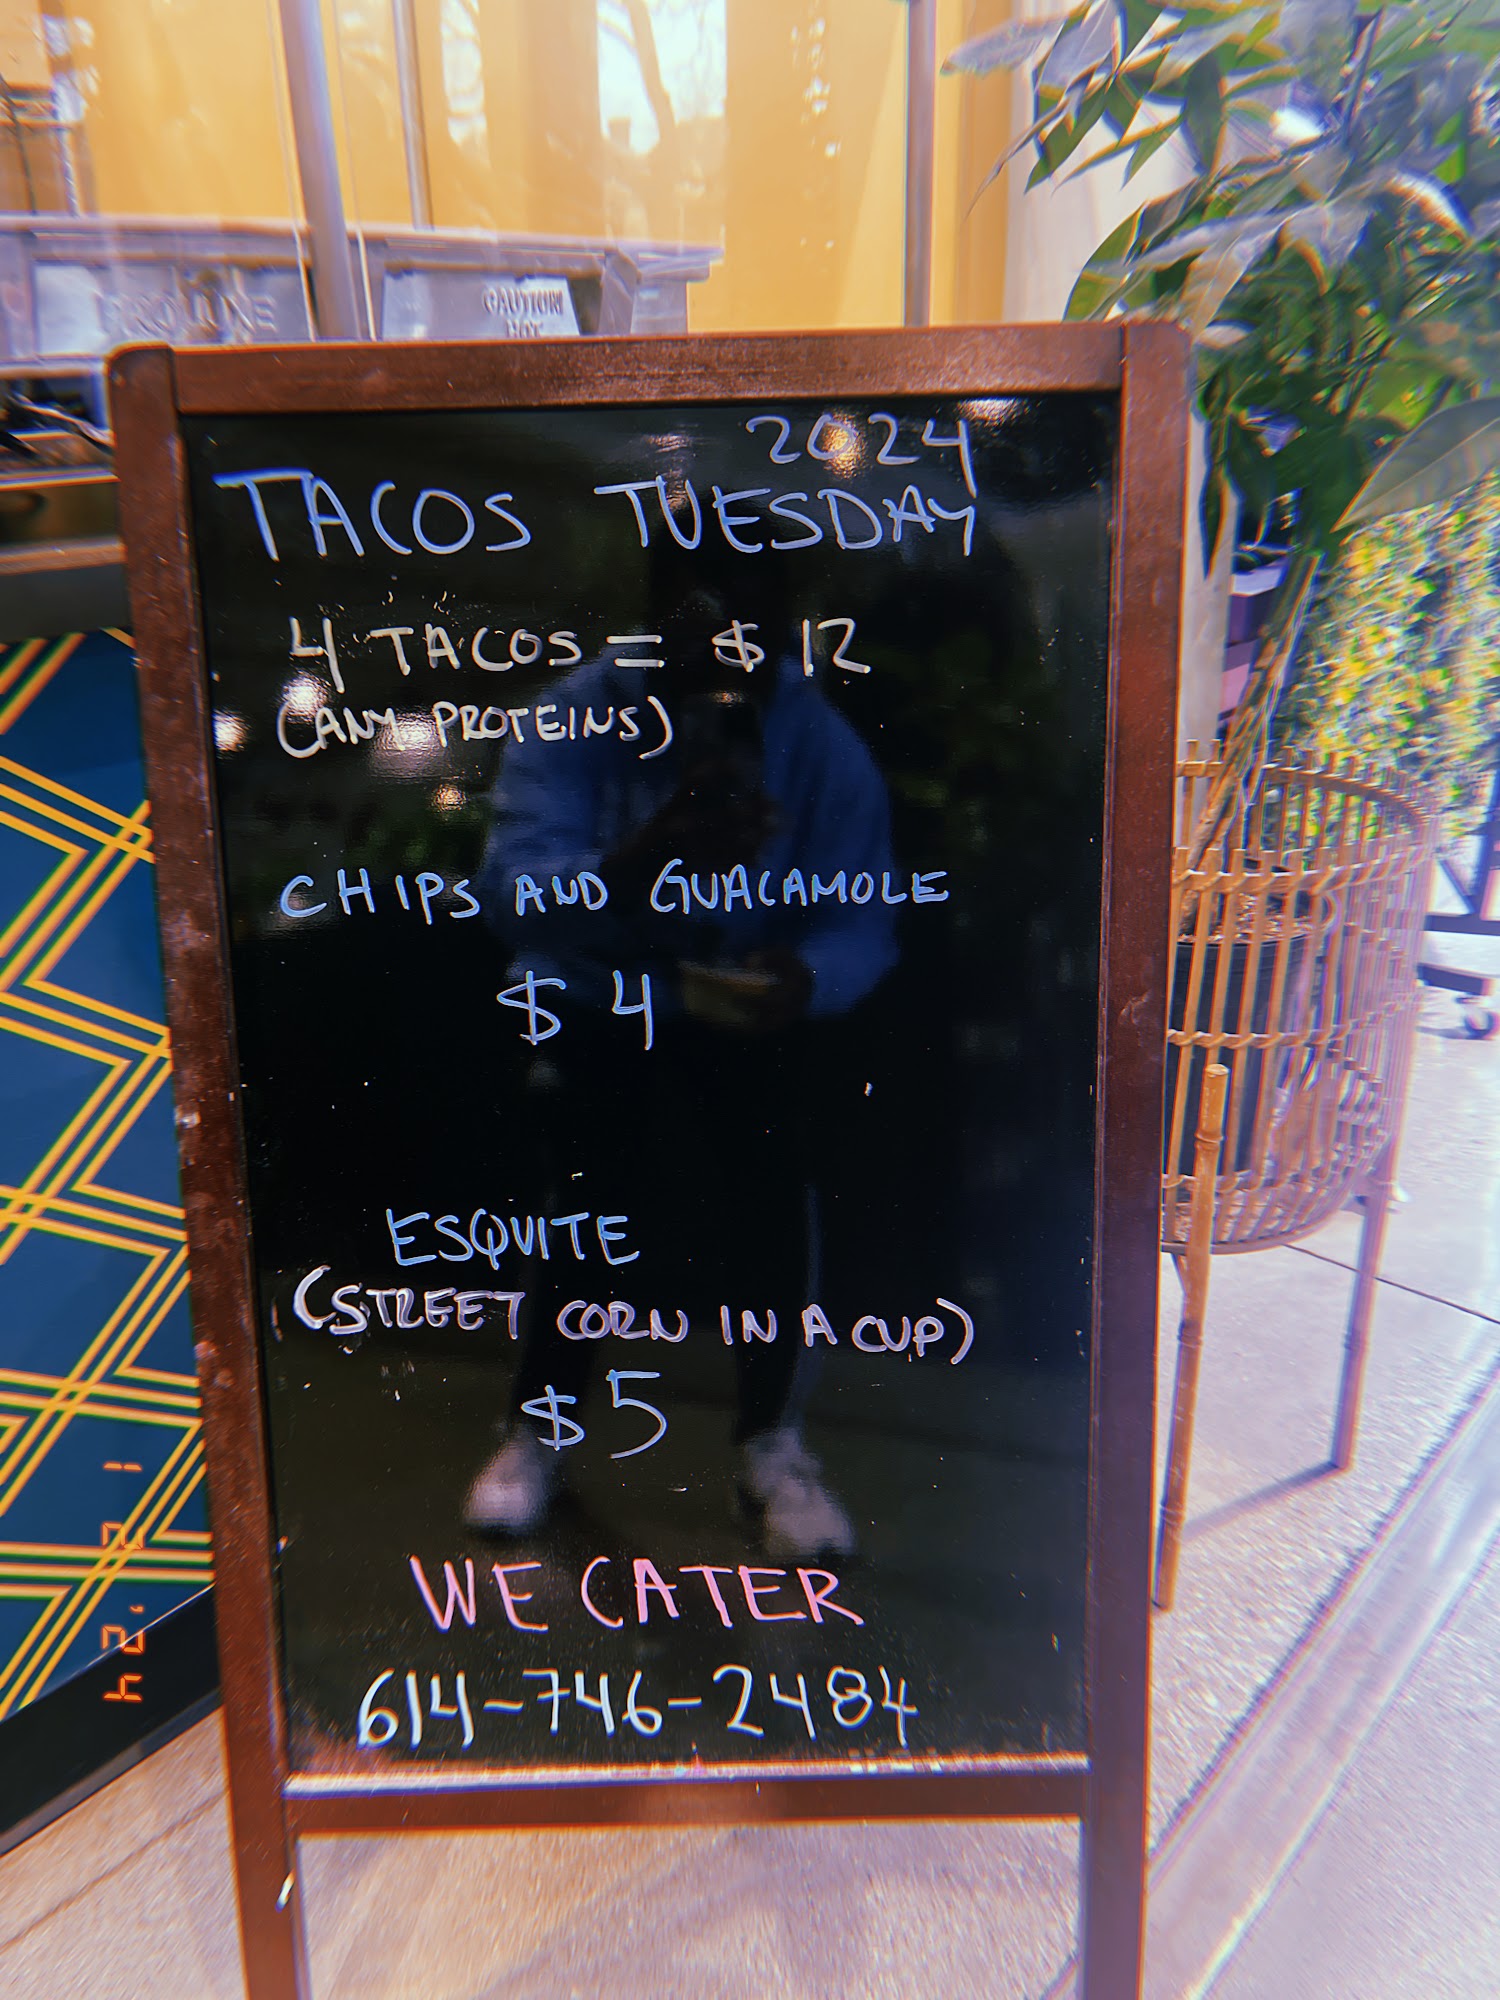 CAUTION
HOT
2024
TACOS TUESDAY
4 TACOS = $12
(ANY PROTEINS)
CHIPS AND GUACAMOLE
$4
ESQUITE
(STREET CORN IN A CUP)
$5
WE CATER
614-746-2484